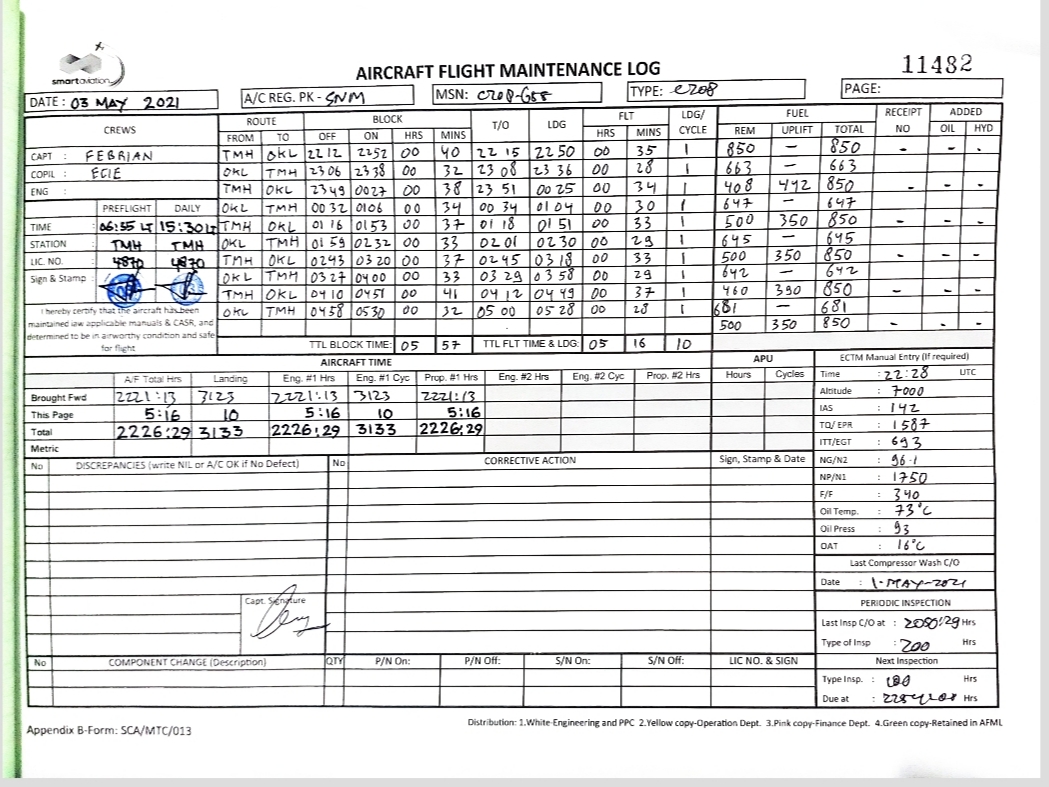 smartaviation
AIRCRAFT FLIGHT MAINTENANCE LOG
11482
DATE : 03 MAY 2021 A/C REG. PK - SNM MSN: TYPE: C208 PAGE:
CREWS ROUTE BLOCK T/O LDG FLT LDG/ CYCLE FUEL RECEIPT NO ADDED
FROM TO OFF ON HRS MINS HRS MINS REM UPLIFT TOTAL OIL HYD
CAPT : FEBRIAN TMH OKL 2212 2252 00 40 22 15 2250 00 35 1 850 — 850 - - -
COPIL : OKL TMH 2306 2338 00 32 23 08 23 36 00 28 1 663 — 663
ENG : TMH OKL 2349 0027 00 38 23 51 00 25 00 34 1 408 442 850 - - -
PREFLIGHT DAILY OKL TMH 0032 0106 00 34 00 34 01 04 00 30 1 647 — 647
TIME 06:55 LT 15:30 LT TMH OKL 01 16 0153 00 37 01 18 01 51 00 33 1 500 350 850 - - -
STATION TMH TMH OKL TMH 01 59 0232 00 33 0201 0230 00 29 1 645 — 645
LIC. NO. 4870 4870 TMH OKL 0243 0320 00 37 0245 0318 00 33 1 500 350 850 - - -
Sign & Stamp OKL TMH 0327 0400 00 33 03 29 0358 00 29 1 642 — 642
TMH OKL 0410 0451 00 41 04 12 04 49 00 37 1 460 390 850 - - -
I hereby certify that the aircraft has been OKL TMH 0458 0530 00 32 05 00 05 28 00 28 1 681 — 681
maintained law applicable manuals & CASR, and 500 350 850 - - -
determined to be in airworthy condition and safe
for flight TTL BLOCK TIME: 05 57 TTL FLT TIME & LDG: 05 16 10
AIRCRAFT TIME APU ECTM Manual Entry (If required)
A/F Total Hrs Landing Eng. #1 Hrs Eng. #1 Cyc Prop. #1 Hrs Eng. #2 Hrs Eng. #2 Cyc Prop. #2 Hrs Hours Cycles Time : 22:28 UTC
Brought Fwd 2221:13 3123 2221:13 3123 2221:13 Altitude : 7000
This Page 5:16 10 5:16 10 5:16 IAS : 142
Total 2226:29 3133 2226:29 3133 2226:29 TQ/ EPR : 1587
Metric ITT/EGT : 693
No DISCREPANCIES (write NIL or A/C OK if No Defect) No CORRECTIVE ACTION Sign, Stamp & Date NG/N2 : 96.1
NP/N1 : 1750
F/F : 340
Oil Temp. : 73°C
Oil Press : 93
OAT : 16°C
Last Compressor Wash C/O
Date : 1-MAY-2021
Capt. Signature PERIODIC INSPECTION
Last Insp C/O at : Hrs
Type of Insp : 200 Hrs
No COMPONENT CHANGE (Description) QTY P/N On: P/N Off: S/N On: S/N Off: LIC NO. & SIGN Next Inspection
Type Insp. : Hrs
Due at : Hrs
Appendix B-Form: SCA/MTC/013
Distribution: 1.White-Engineering and PPC 2.Yellow copy-Operation Dept. 3.Pink copy-Finance Dept. 4.Green copy-Retained in AFML